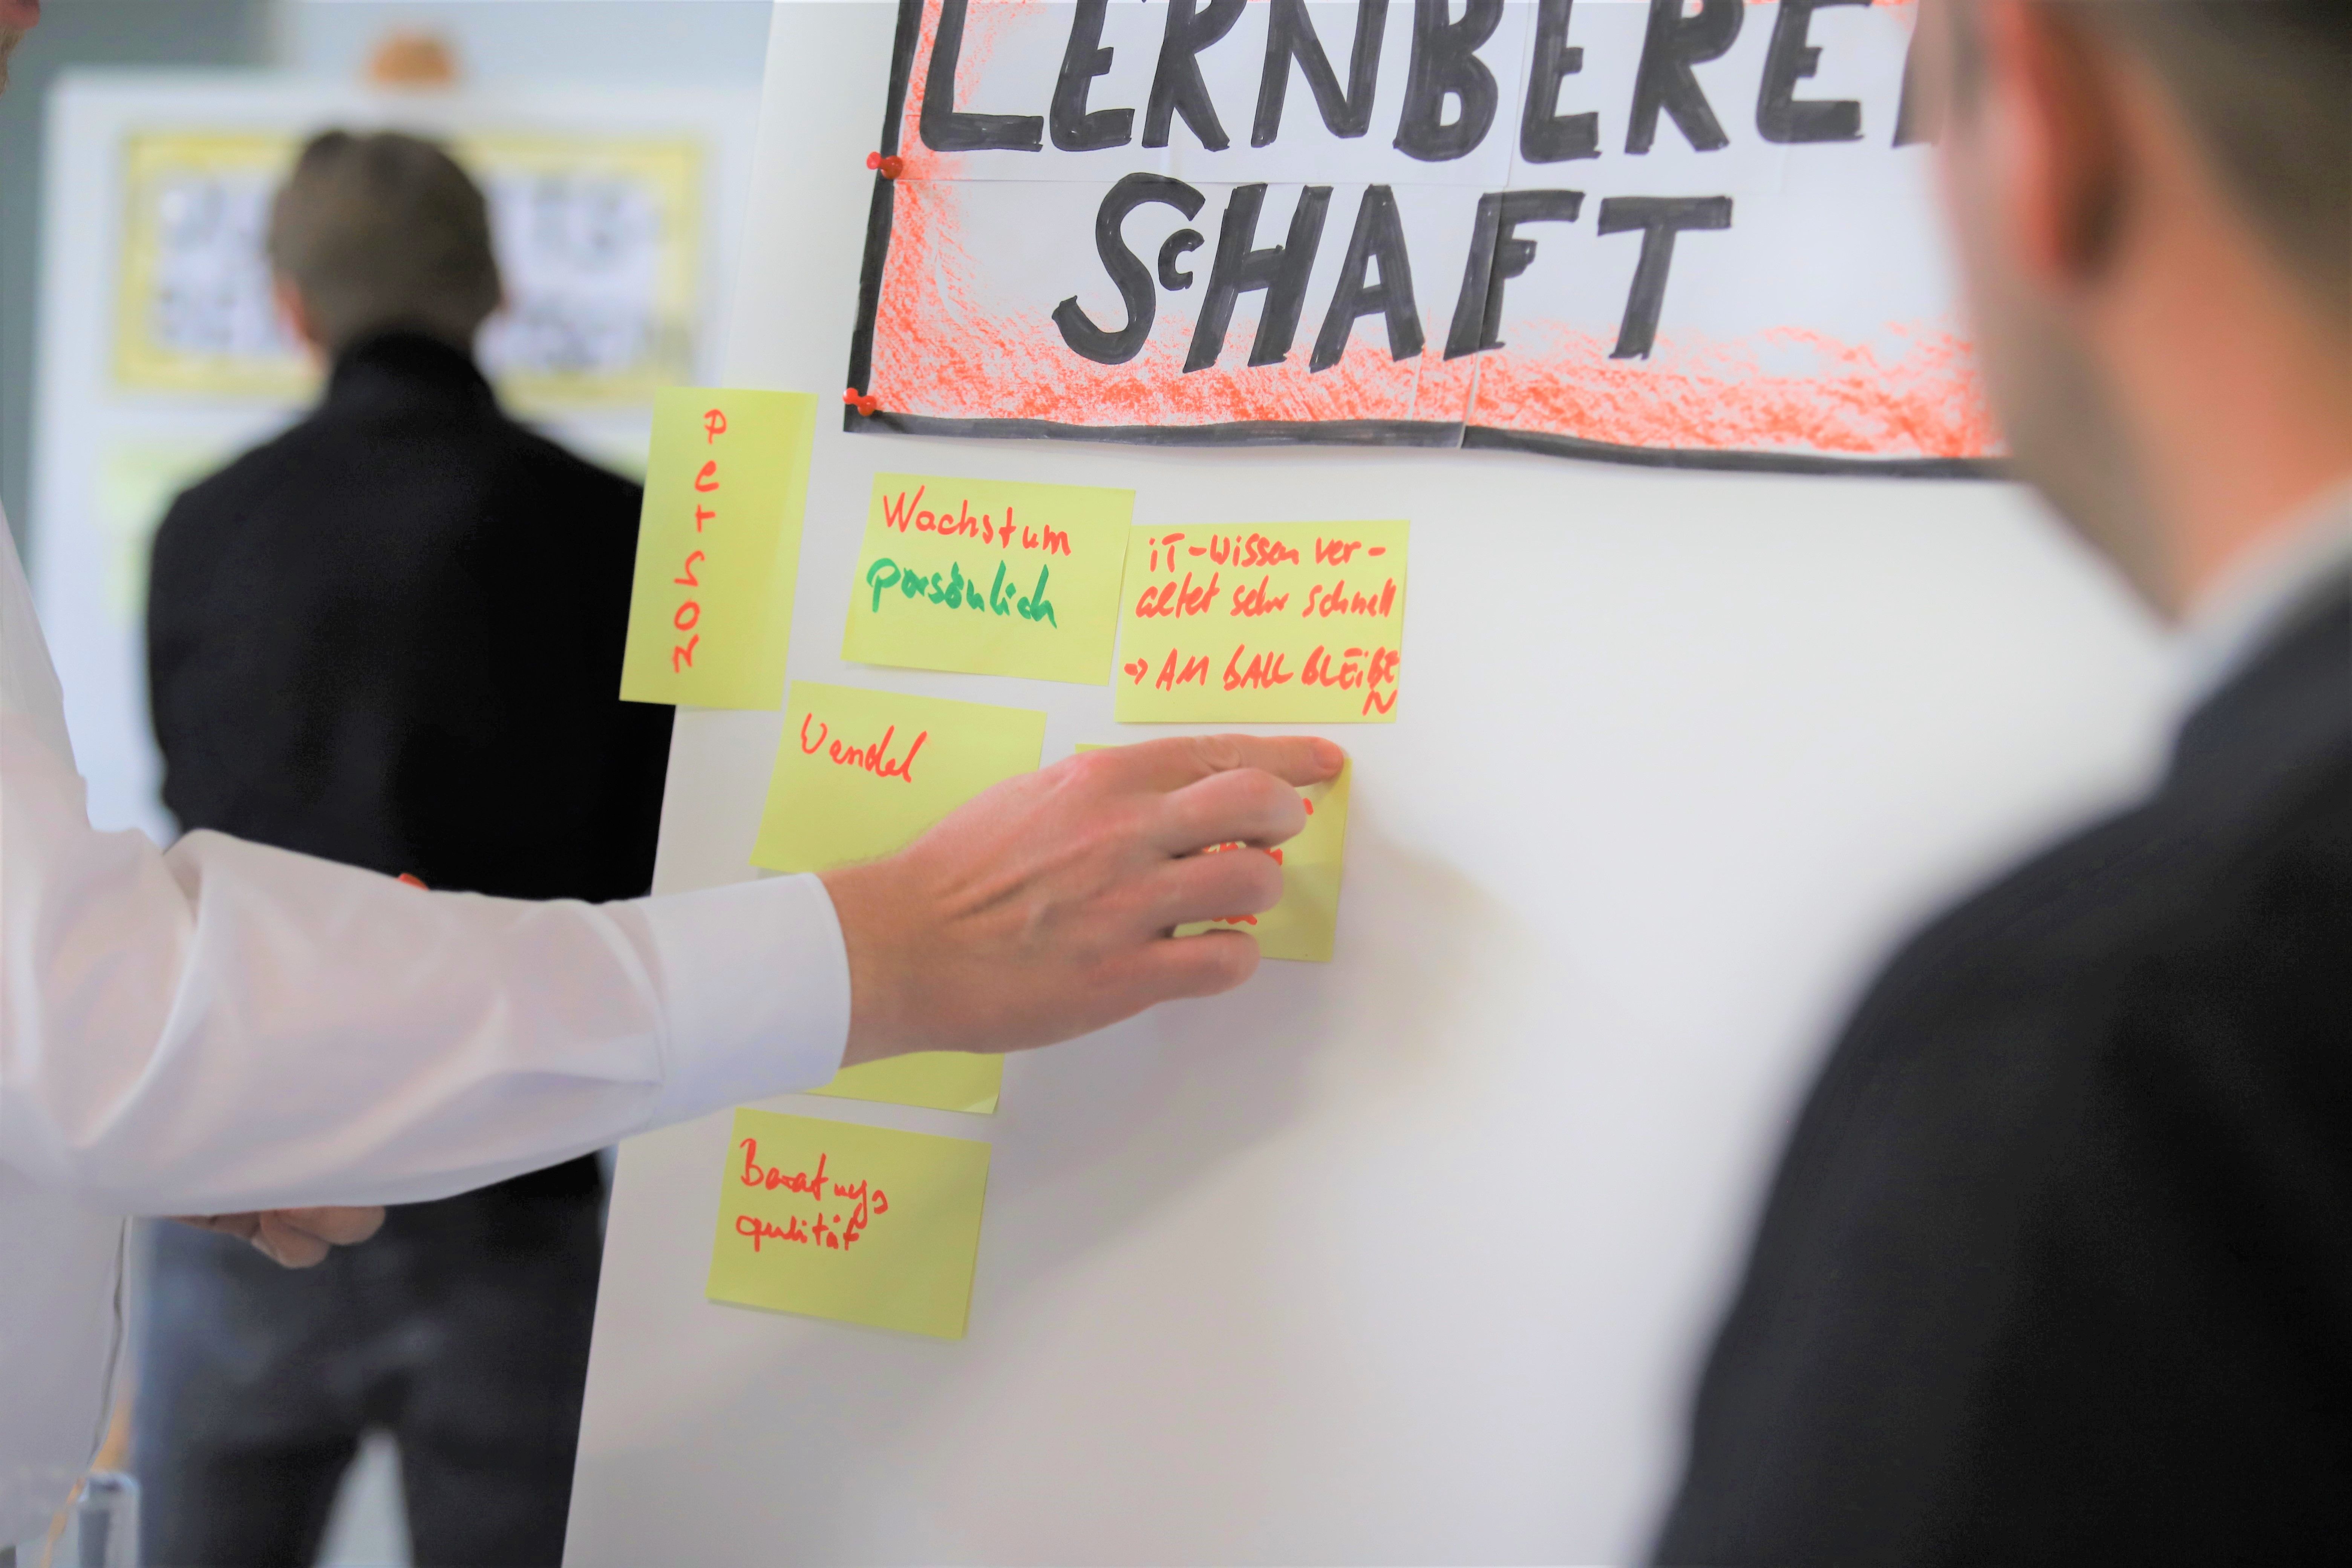 LERNBEREI
SCHAFT
Wachstum
persönlich
iT-Wissen ver-
altet sehr schnell
→ AM BALL BLEiBE
N
Wandel
Beratungs
qulität